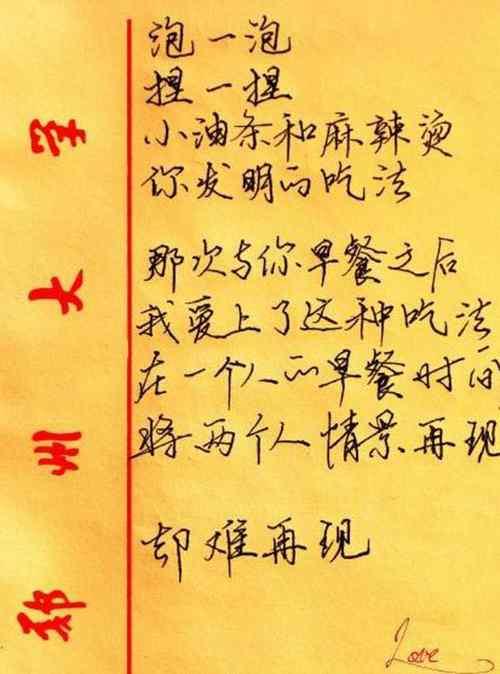 郑州大学
泡一泡
捏一捏
小油条和麻辣烫
你发明的吃法
那次与你早餐之后
我爱上了这种吃法
在一个人的早餐时间
将两个人情景再现
却难再现
Love